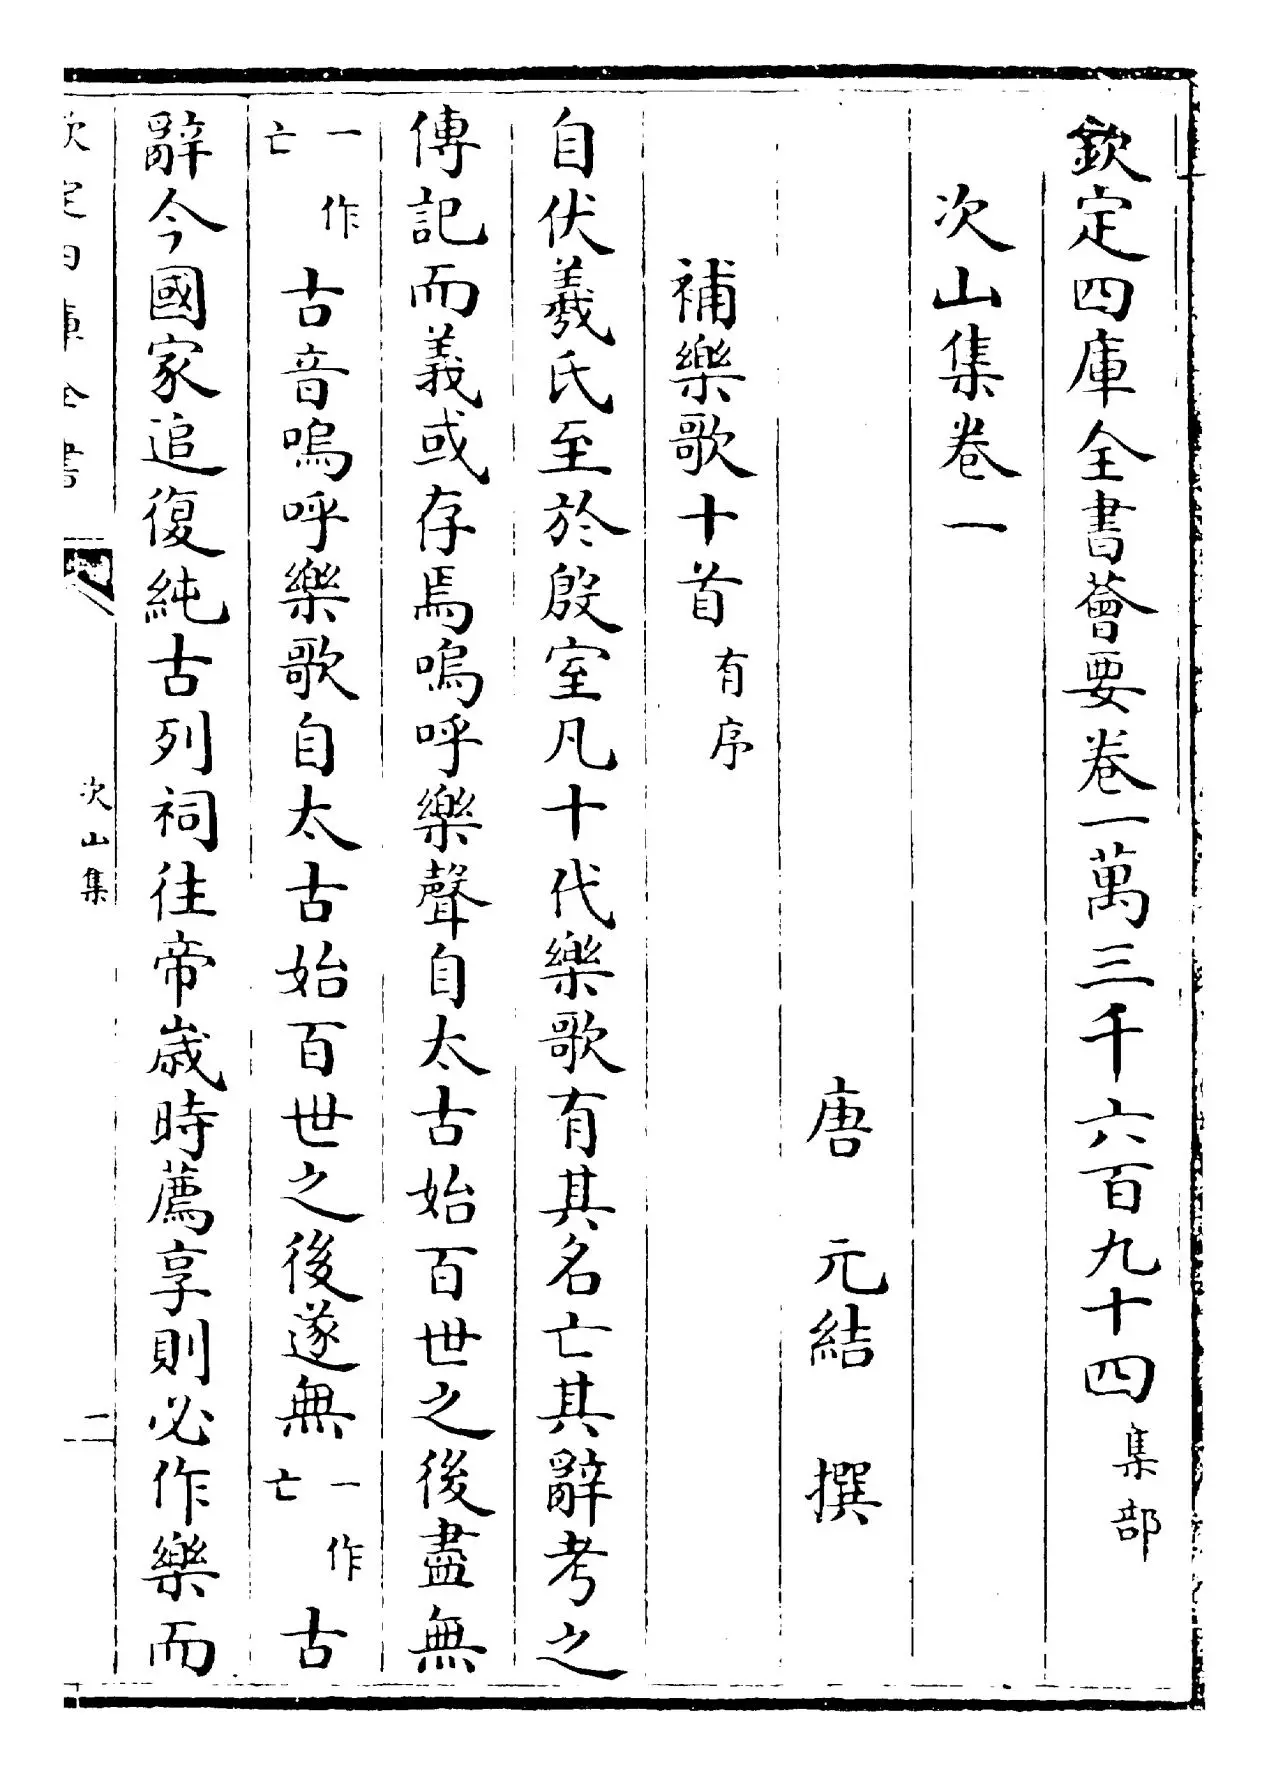 欽定四庫全書薈要卷一萬三千六百九十四集部
次山集卷一
唐 元結 撰
補樂歌十首有序
自伏羲氏至於殷室凡十代樂歌有其名亡其辭考之
傳記而義或存焉嗚呼樂聲自太古始百世之後盡無
一作亡古音嗚呼樂歌自太古始百世之後遂無一作亡古
辭今國家追復純古列祠往帝歲時薦享則必作樂而
欽定四庫全書
次山集
一